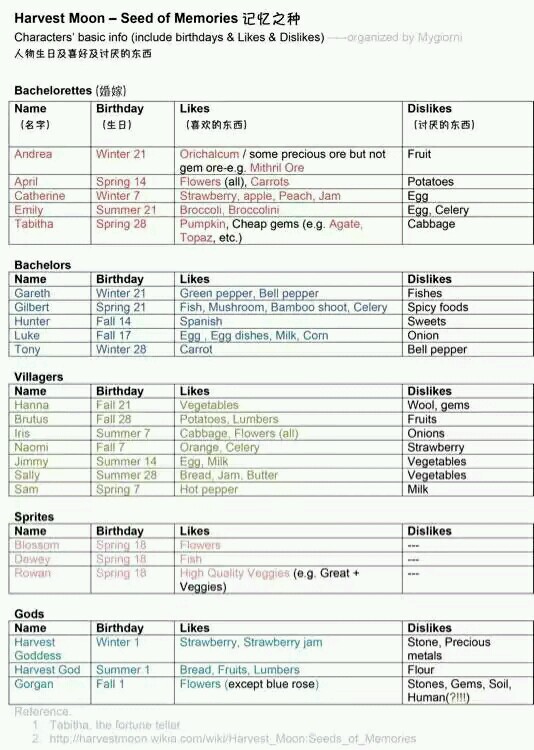 Harvest Moon – Seed of Memories 记忆之种
Characters' basic info (include birthdays & Likes & Dislikes) ----organized by Mygiorni
人物生日及喜好及讨厌的东西
Bachelorettes (婚嫁)
Name Birthday Likes Dislikes
(名字) (生日) (喜欢的东西) (讨厌的东西)
Andrea Winter 21 Orichalcum / some precious ore but not Fruit
gem ore-e.g. Mithril Ore
April Spring 14 Flowers (all), Carrots Potatoes
Catherine Winter 7 Strawberry, apple, Peach, Jam Egg
Emily Summer 21 Broccoli, Broccolini Egg, Celery
Tabitha Spring 28 Pumpkin, Cheap gems (e.g. Agate, Cabbage
Topaz, etc.)
Bachelors
Name Birthday Likes Dislikes
Gareth Winter 21 Green pepper, Bell pepper Fishes
Gilbert Spring 21 Fish, Mushroom, Bamboo shoot, Celery Spicy foods
Hunter Fall 14 Spanish Sweets
Luke Fall 17 Egg , Egg dishes, Milk, Corn Onion
Tony Winter 28 Carrot Bell pepper
Villagers
Name Birthday Likes Dislikes
Hanna Fall 21 Vegetables Wool, gems
Brutus Fall 28 Potatoes, Lumbers Fruits
Iris Summer 7 Cabbage, Flowers (all) Onions
Naomi Fall 7 Orange, Celery Strawberry
Jimmy Summer 14 Egg, Milk Vegetables
Sally Summer 28 Bread, Jam, Butter Vegetables
Sam Spring 7 Hot pepper Milk
Sprites
Name Birthday Likes Dislikes
Blossom Spring 18 Flowers ---
Dewey Spring 18 Fish ---
Rowan Spring 18 High Quality Veggies (e.g. Great + ---
Veggies)
Gods
Name Birthday Likes Dislikes
Harvest Winter 1 Strawberry, Strawberry jam Stone, Precious
Goddess metals
Harvest God Summer 1 Bread, Fruits, Lumbers Flour
Gorgan Fall 1 Flowers (except blue rose) Stones, Gems, Soil,
Human(?!!!)
Reference.
1 Tabitha, the fortune teller
2. http://harvestmoon.wikia.com/wiki/Harvest_Moon:Seeds_of_Memories